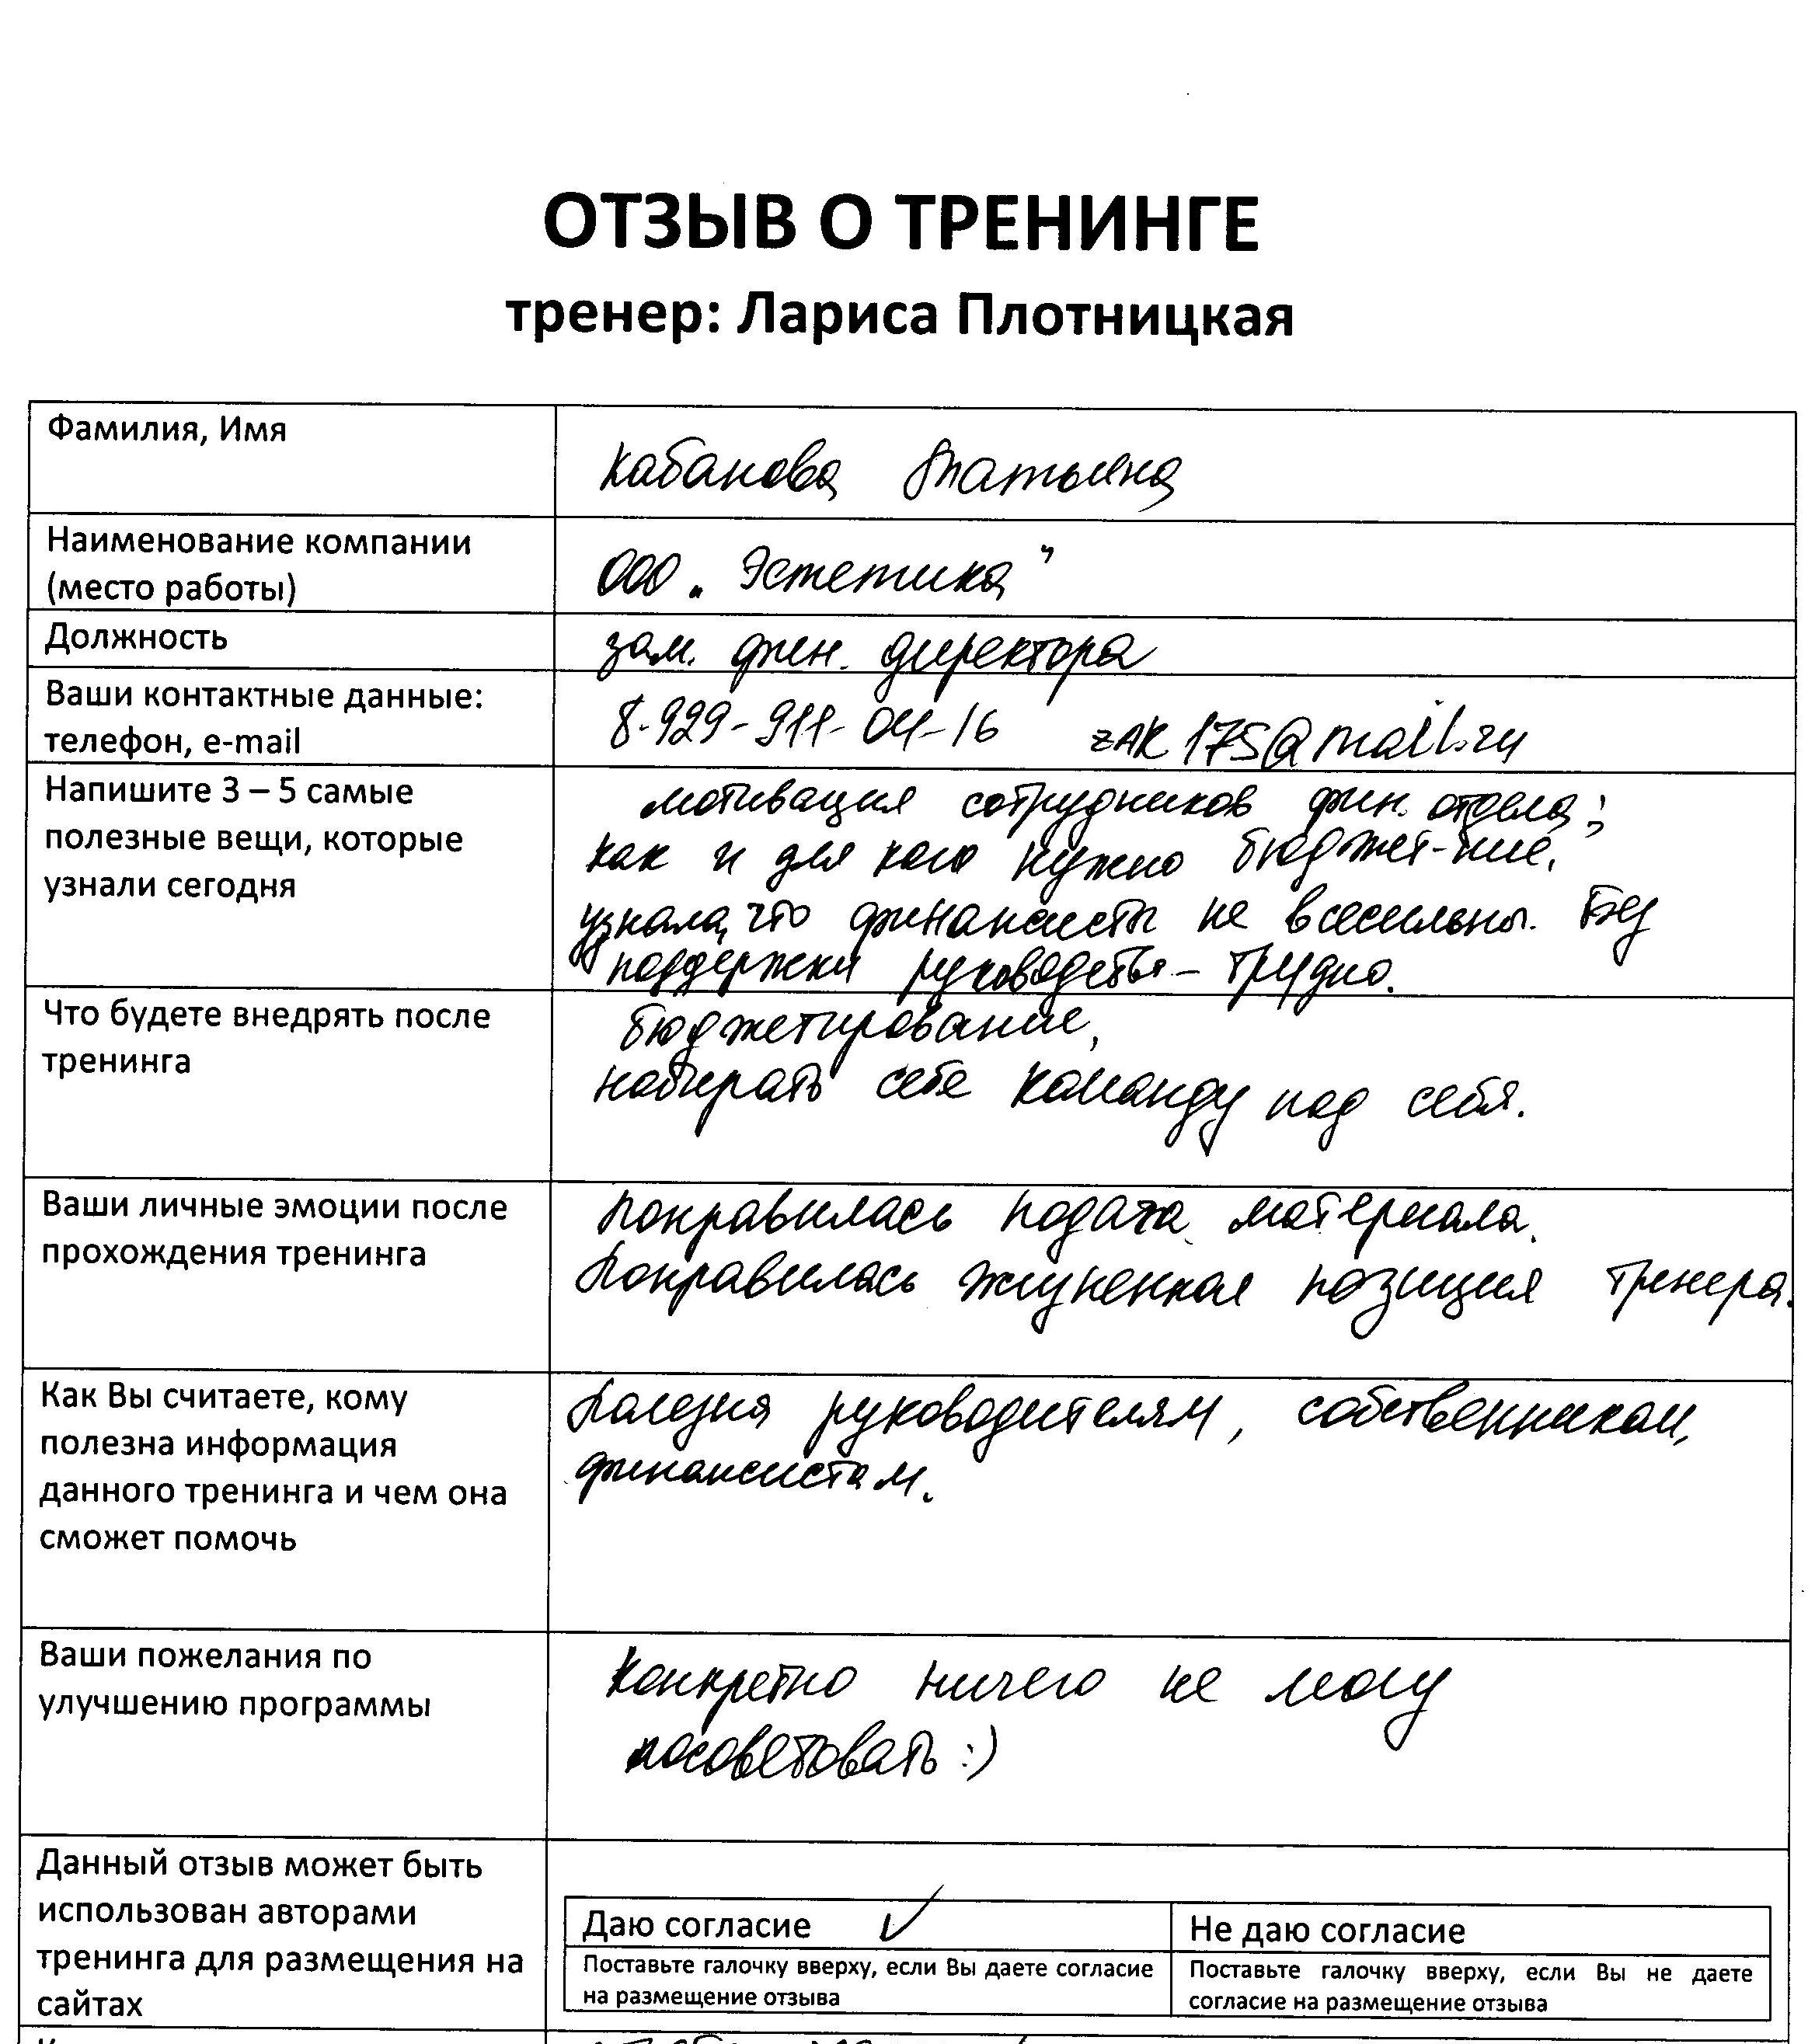 ОТЗЫВ О ТРЕНИНГЕ
тренер: Лариса Плотницкая
Фамилия, Имя
Кабанова Татьяна
Наименование компании
(место работы)
ООО „Эстетика"
Должность
зам. фин. директора
Ваши контактные данные:
телефон, e-mail
8-929-911-04-16 ZAK175@mail.ru
Напишите 3 – 5 самые
полезные вещи, которые
узнали сегодня
мотивация сотрудников фин. отдела;
как и для кого нужно бюджет-ние,
узнала, что финансисты не всесильны. Без
поддержки руководства – трудно.
Что будете внедрять после
тренинга
бюджетирование,
набирать себе команду под себя.
Ваши личные эмоции после
прохождения тренинга
Понравилась подача материала.
Понравилась жизненная позиция тренера.
Как Вы считаете, кому
полезна информация
данного тренинга и чем она
сможет помочь
Полезна руководителям, собственникам,
финансистам.
Ваши пожелания по
улучшению программы
Конкретно ничего не могу
посоветовать :)
Данный отзыв может быть
использован авторами
тренинга для размещения на
сайтах
Даю согласие ✓
Поставьте галочку вверху, если Вы даете согласие
на размещение отзыва
Не даю согласие
Поставьте галочку вверху, если Вы не даете
согласие на размещение отзыва